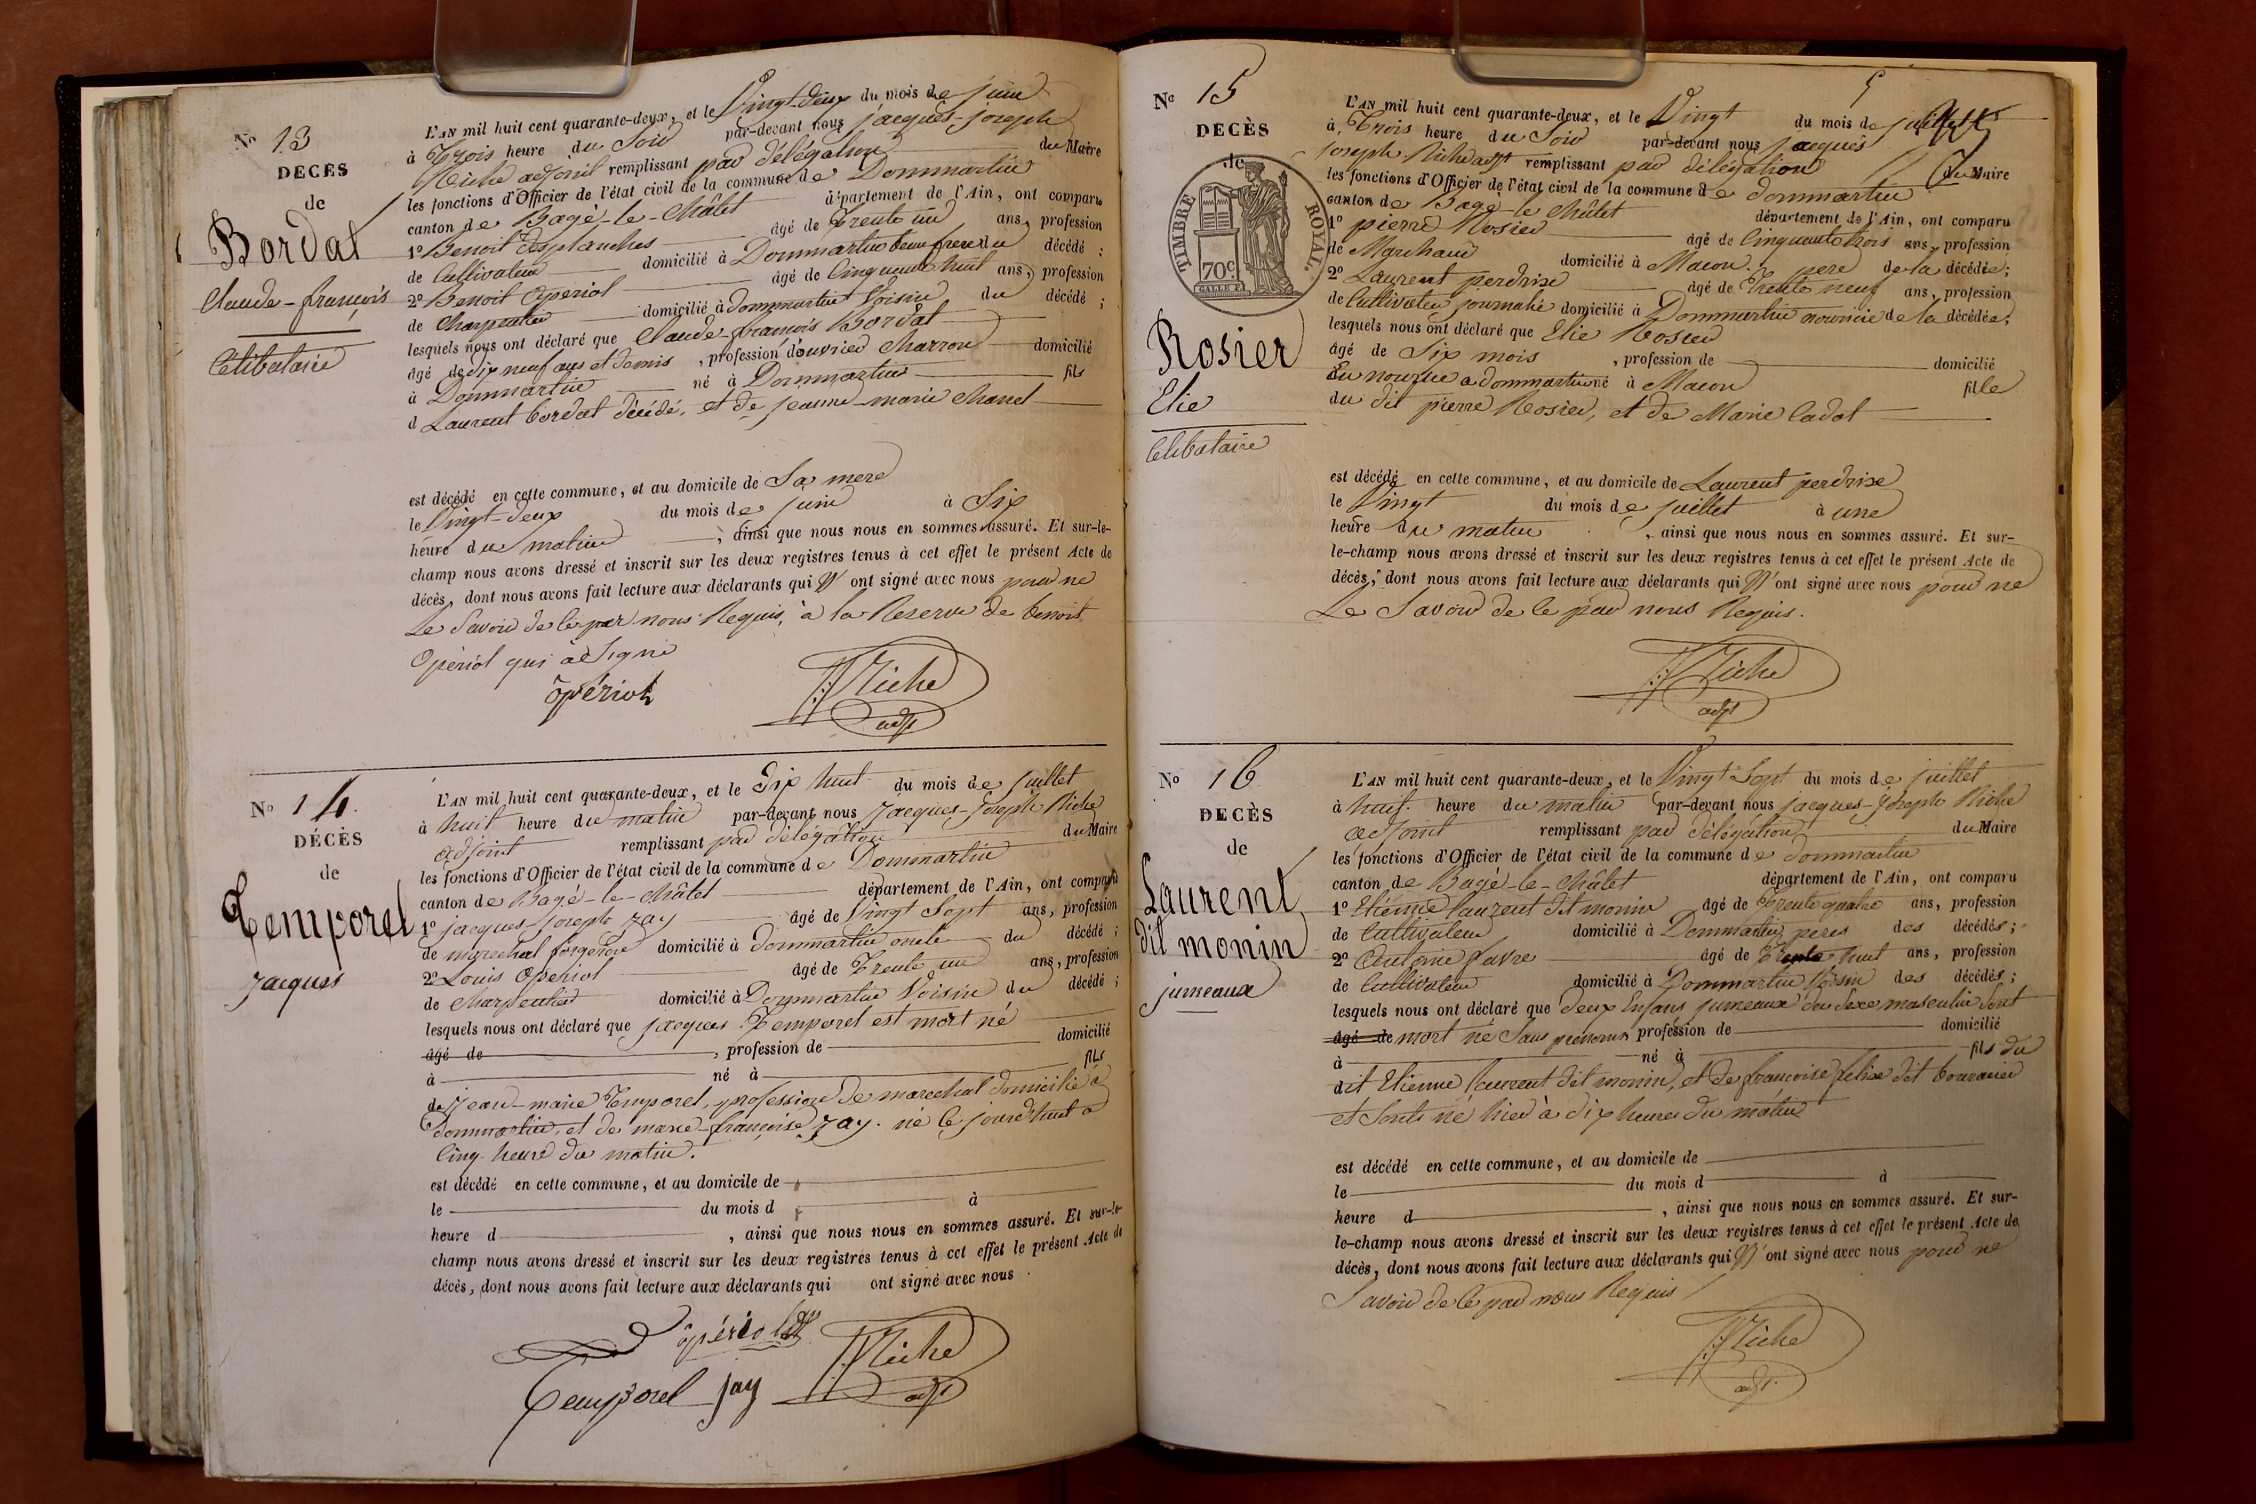 No 13
DECÈS
de
Bordat
Claude-françois
Célibataire
L'AN mil huit cent quarante-deux, et le Vingt-deux du mois de juin
à Trois heure du Soir par-devant nous jacques-joseph
Riche adjoint remplissant par délégation du Maire
les fonctions d'Officier de l'état civil de la commune de Dommartin
canton de Bagé-le-Châtel département de l'Ain, ont comparu
1º Benoit Desplanches âgé de Trente un ans, profession
de Cultivateur domicilié à Dommartin beau frere du décédé ;
2º Benoit Opériol âgé de Cinquante huit ans, profession
de Charpentier domicilié à dommartin Voisin du décédé ;
lesquels nous ont déclaré que Claude-françois Bordat
âgé de dix neuf ans et demis , profession d'ouvrier charron domicilié
à Dommartin né à Dommartin fils
d Laurent bordat décédé, et de jeanne-marie Chanel
est décédé en cette commune, et au domicile de Sa mere
le Vingt-deux du mois de juin à Six
heure du matin ; ainsi que nous nous en sommes assuré. Et sur-le-
champ nous avons dressé et inscrit sur les deux registres tenus à cet effet le présent Acte de
décès, dont nous avons fait lecture aux déclarants qui N' ont signé avec nous pour ne
Le Savoir de le par nous Requis, à la Reserve de benoit
Opériol qui a Signé
opériol
JJ Riche
adjt
No 14.
DÉCÈS
de
Temporel
Jacques
L'AN mil huit cent quarante-deux, et le Dix huit du mois de juillet
à huit heure du matin par-devant nous jacques-joseph Riche
adjoint remplissant par délégation du Maire
les fonctions d'Officier de l'état civil de la commune de Dommartin
canton de Bagé-le-Châtel département de l'Ain, ont comparu
1º jacques-joseph jay âgé de Vingt Sept ans, profession
de marechal forgeron domicilié à dommartin oncle du décédé ;
2º Louis Opériol âgé de Trente un ans, profession
de Charpentier domicilié à Dommartin Voisin du décédé ;
lesquels nous ont déclaré que jacques Temporel est mort né
âgé de , profession de domicilié
à né à fils
de jean-marie Temporel, profession de marechal domicilié à
dommartin, et de marie-françoise jay. né le jourd'huit a
Cinq heure du matin.
est décédé en cette commune, et au domicile de
le du mois d à
heure d , ainsi que nous nous en sommes assuré. Et sur-le-
champ nous avons dressé et inscrit sur les deux registres tenus à cet effet le présent Acte de
décès, dont nous avons fait lecture aux déclarants qui ont signé avec nous
opériol
Temporel jay
JJ Riche
adjt
5
No 15
DECÈS
de
TIMBRE ROYAL.
70c
Rosier
Elie
Célibataire
L'AN mil huit cent quarante-deux, et le Vingt du mois de juillet
à Trois heure du Soir par-devant nous jacques
joseph Riche adjt remplissant par délégation du Maire
les fonctions d'Officier de l'état civil de la commune de dommartin
canton de Bagé-le-Châtel département de l'Ain, ont comparu
1º pierre Rosier âgé de Cinquante trois ans, profession
de Marchand domicilié à Macon. pere de la décédée;
2º Laurent perdrise âgé de Trente neuf ans, profession
de Cultivateur journalié domicilié à Dommartin nourricié de la décédée;
lesquels nous ont déclaré que Elie Rosier
âgé de Six mois , profession de domicilié
En nourrice a dommartin né à Macon fille
du dit pierre Rosier, et de Marie Cadot
est décédé en cette commune, et au domicile de Laurent perdrise
le Vingt du mois de juillet à une
heure du matin , ainsi que nous nous en sommes assuré. Et sur-
le-champ nous avons dressé et inscrit sur les deux registres tenus à cet effet le présent Acte de
décès, dont nous avons fait lecture aux déclarants qui N' ont signé avec nous pour ne
Le Savoir de le par nous Requis.
JJ Riche
adjt
No 16
DECÈS
de
Laurent
dit monin
jumeaux
L'AN mil huit cent quarante-deux, et le Vingt Sept du mois de juillet
à huit heure du matin par-devant nous jacques-joseph Riche
adjoint remplissant par délégation du Maire
les fonctions d'Officier de l'état civil de la commune de dommartin
canton de Bagé-le-Châtel département de l'Ain, ont comparu
1º Etienne laurent dit monin âgé de Trente quatre ans, profession
de Cultivateur domicilié à Dommartin peres des décédés;
2º Antoine favre âgé de Trente huit ans, profession
de Cultivateur domicilié à Dommartin Voisin des décédés;
lesquels nous ont déclaré que deux Enfans jumeaux du Sexe masculin Sont
âgé de mort né Sans prénoms profession de domicilié
à né à fils du
dit Etienne laurent dit monin, et de françoise felix dit bouvancer
et Sonts né hier à dix heures du matin
est décédé en cette commune, et au domicile de
le du mois d à
heure d , ainsi que nous nous en sommes assuré. Et sur-
le-champ nous avons dressé et inscrit sur les deux registres tenus à cet effet le présent Acte de
décès, dont nous avons fait lecture aux déclarants qui N' ont signé avec nous pour ne
Savoir de le par nous Requis
JJ Riche
adjt.